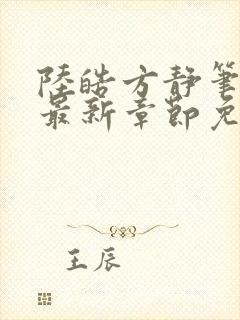 陸皓方静筆
最新章節免
王辰